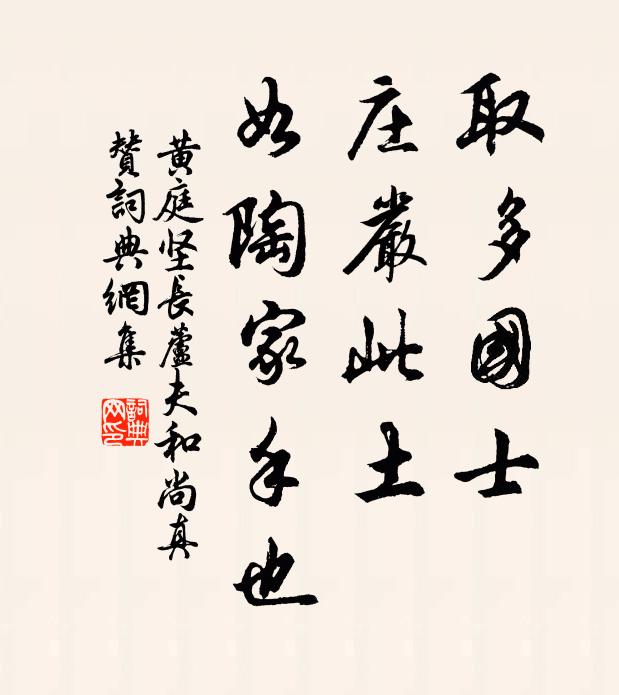 取多國士
庄嚴此土
如陶家手也
黄庭坚長蘆夫和尚真
贊詞典網集
詞典
网印